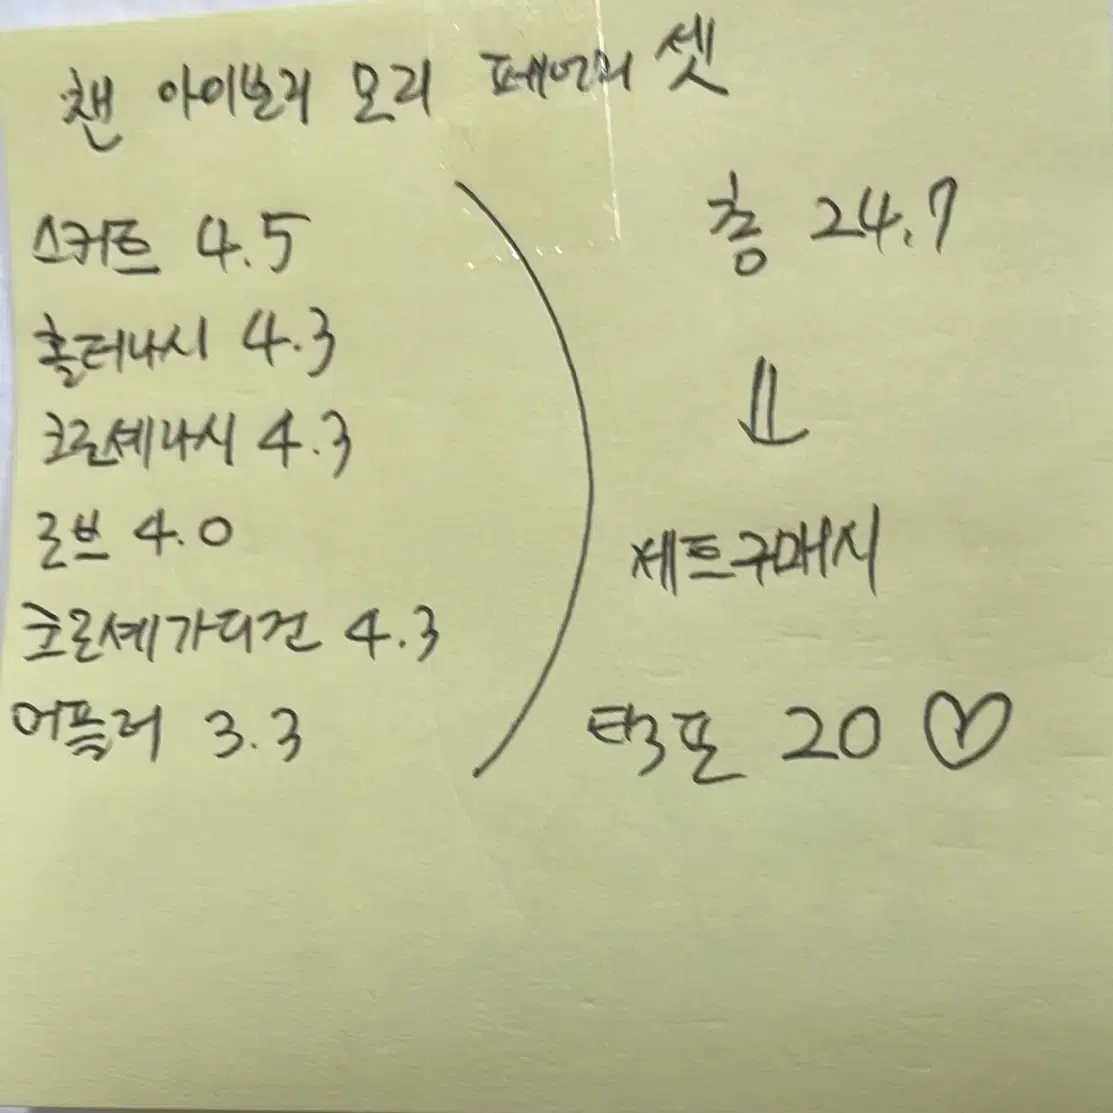 챈 아이보리 모리 페어리 셋
스커트 4.5
홀터나시 4.3
크로셰나시 4.3
로브 4.0
크로셰가디건 4.3
어플러 3.3
총 24.7
⇓
세트구매시
택포 20 ♡